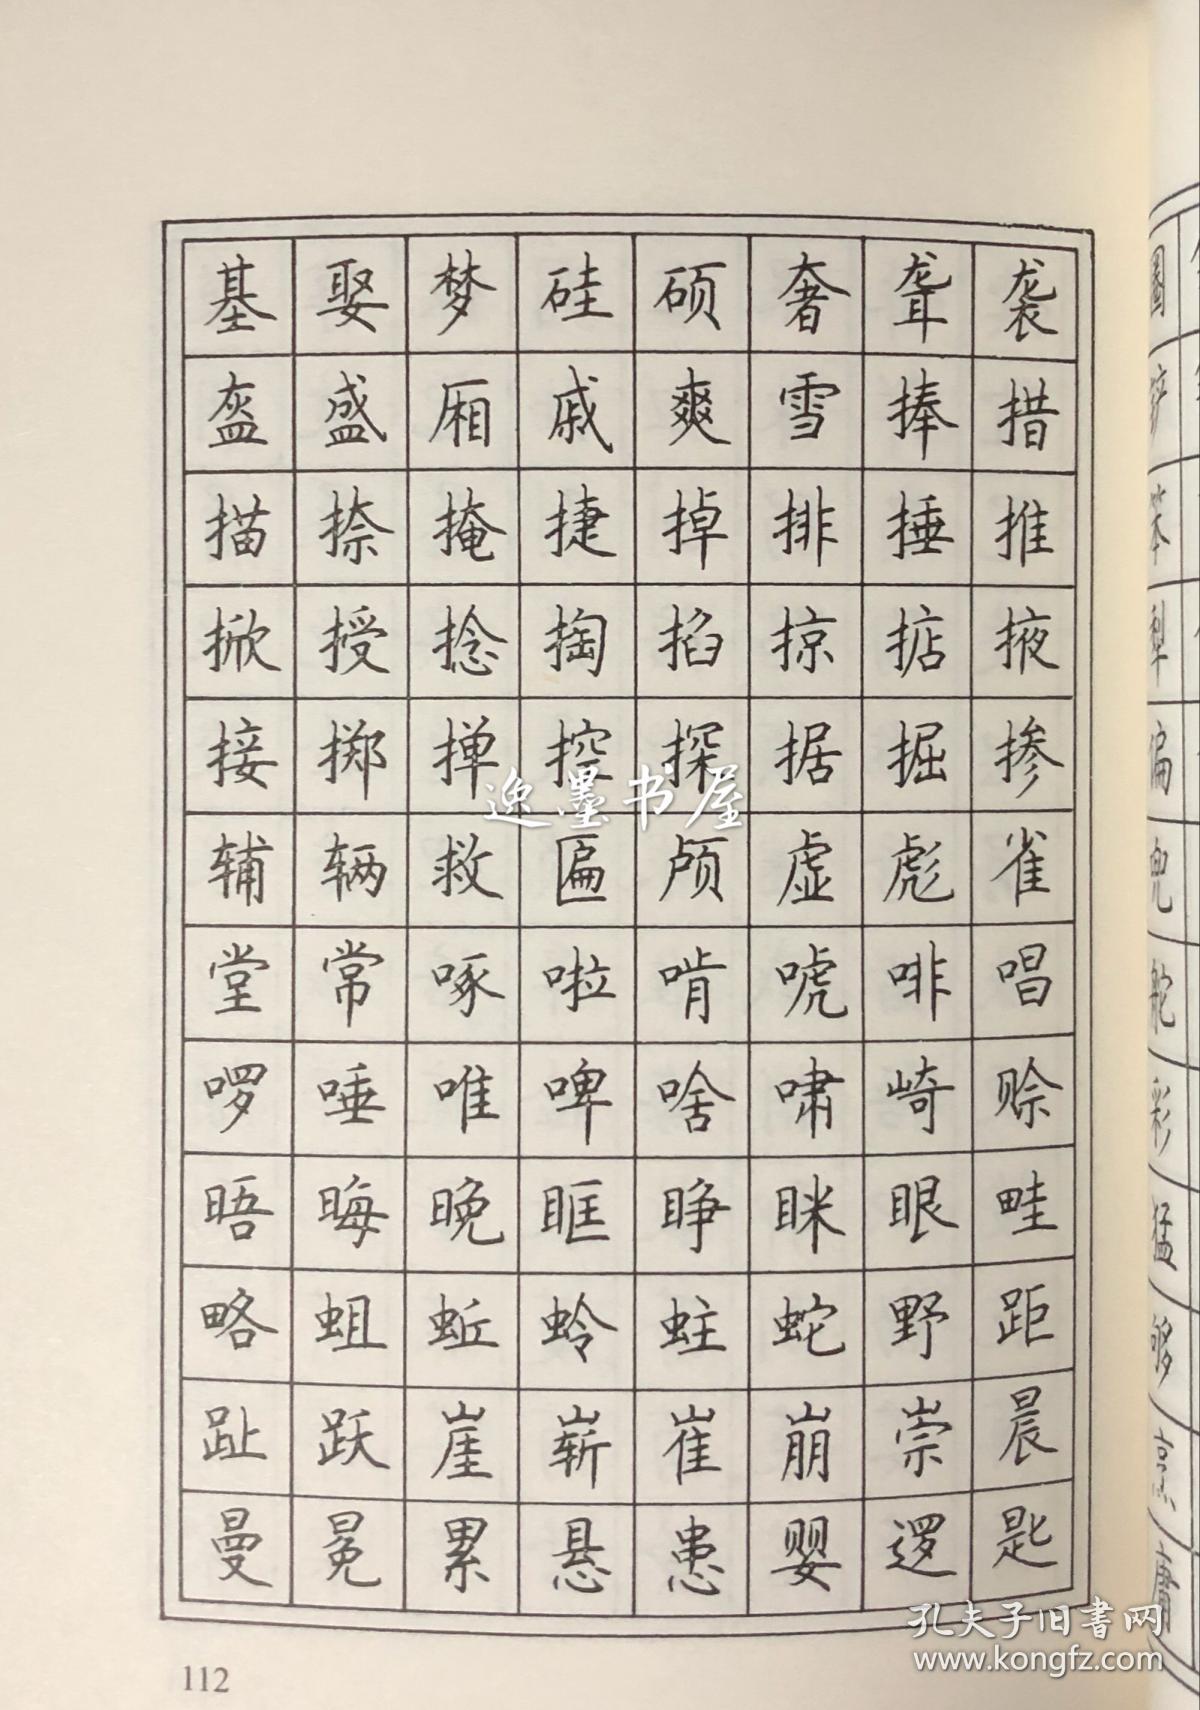 基娶梦硅硕奢聋袭
盔盛厢戚爽雪捧措
描捺掩捷掉排捶推
掀授捻掏掐掠掂掖
接掷掸控探据掘掺
辅辆救匾颅虚彪雀
堂常啄啦啃唬啡唱
啰唾唯啤啥啸崎赊
晤晦晚眶睁眯眼畦
略蛆蚯蛉蛀蛇野距
趾跃崖崭崔崩崇晨
曼冕累悬患婴逻匙
逸墨书屋
112
孔夫子旧书网
www.kongfz.com